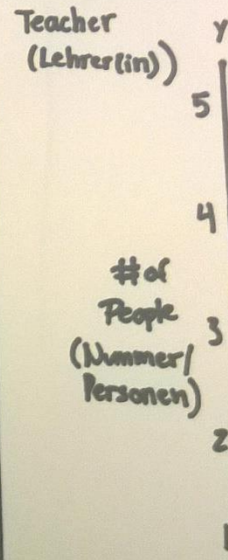 Teacher
(Lehrer(in))
y
5
4
# of
People
(Nummer/
Personen)
3
2